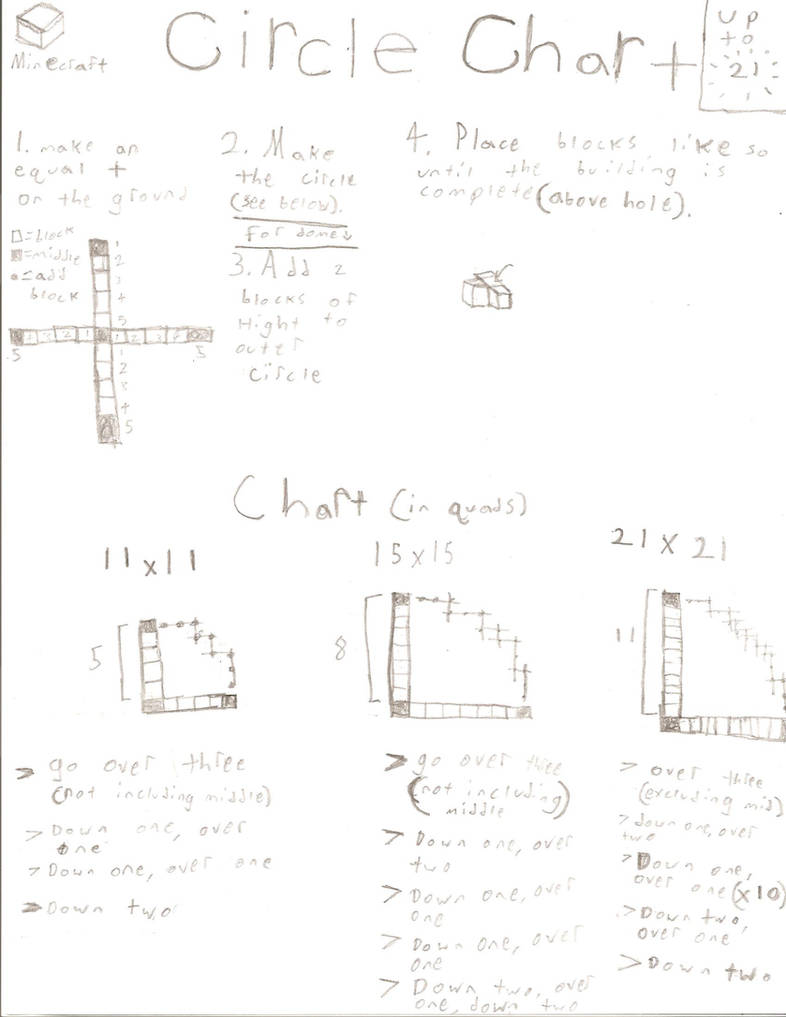 Minecraft
Circle Chart
up
to
21
1. make an
equal +
on the ground
□=block
=middle
•=add
block
1
2
3
4
5
5
4 3 2 1
1 2 3 4
5
1
2
3
4
5
2. Make
the circle
(see below).
for dome↓
3. Add 2
blocks of
Hight to
outer
circle
4. Place blocks like so
until the building is
complete (above hole).
Chart (in quads)
11x11
5
> go over three
(not including middle)
> Down one, over
one
> Down one, over one
> Down two
15x15
8
> go over three
(not including
middle)
> Down one, over
two
> Down one, over
one
> Down one, over
one
> Down two, over
one, down two
21 x 21
11
> over three
(excluding mid)
> down one, over
two
> Down one,
over one (x10)
> Down two,
over one
> Down two